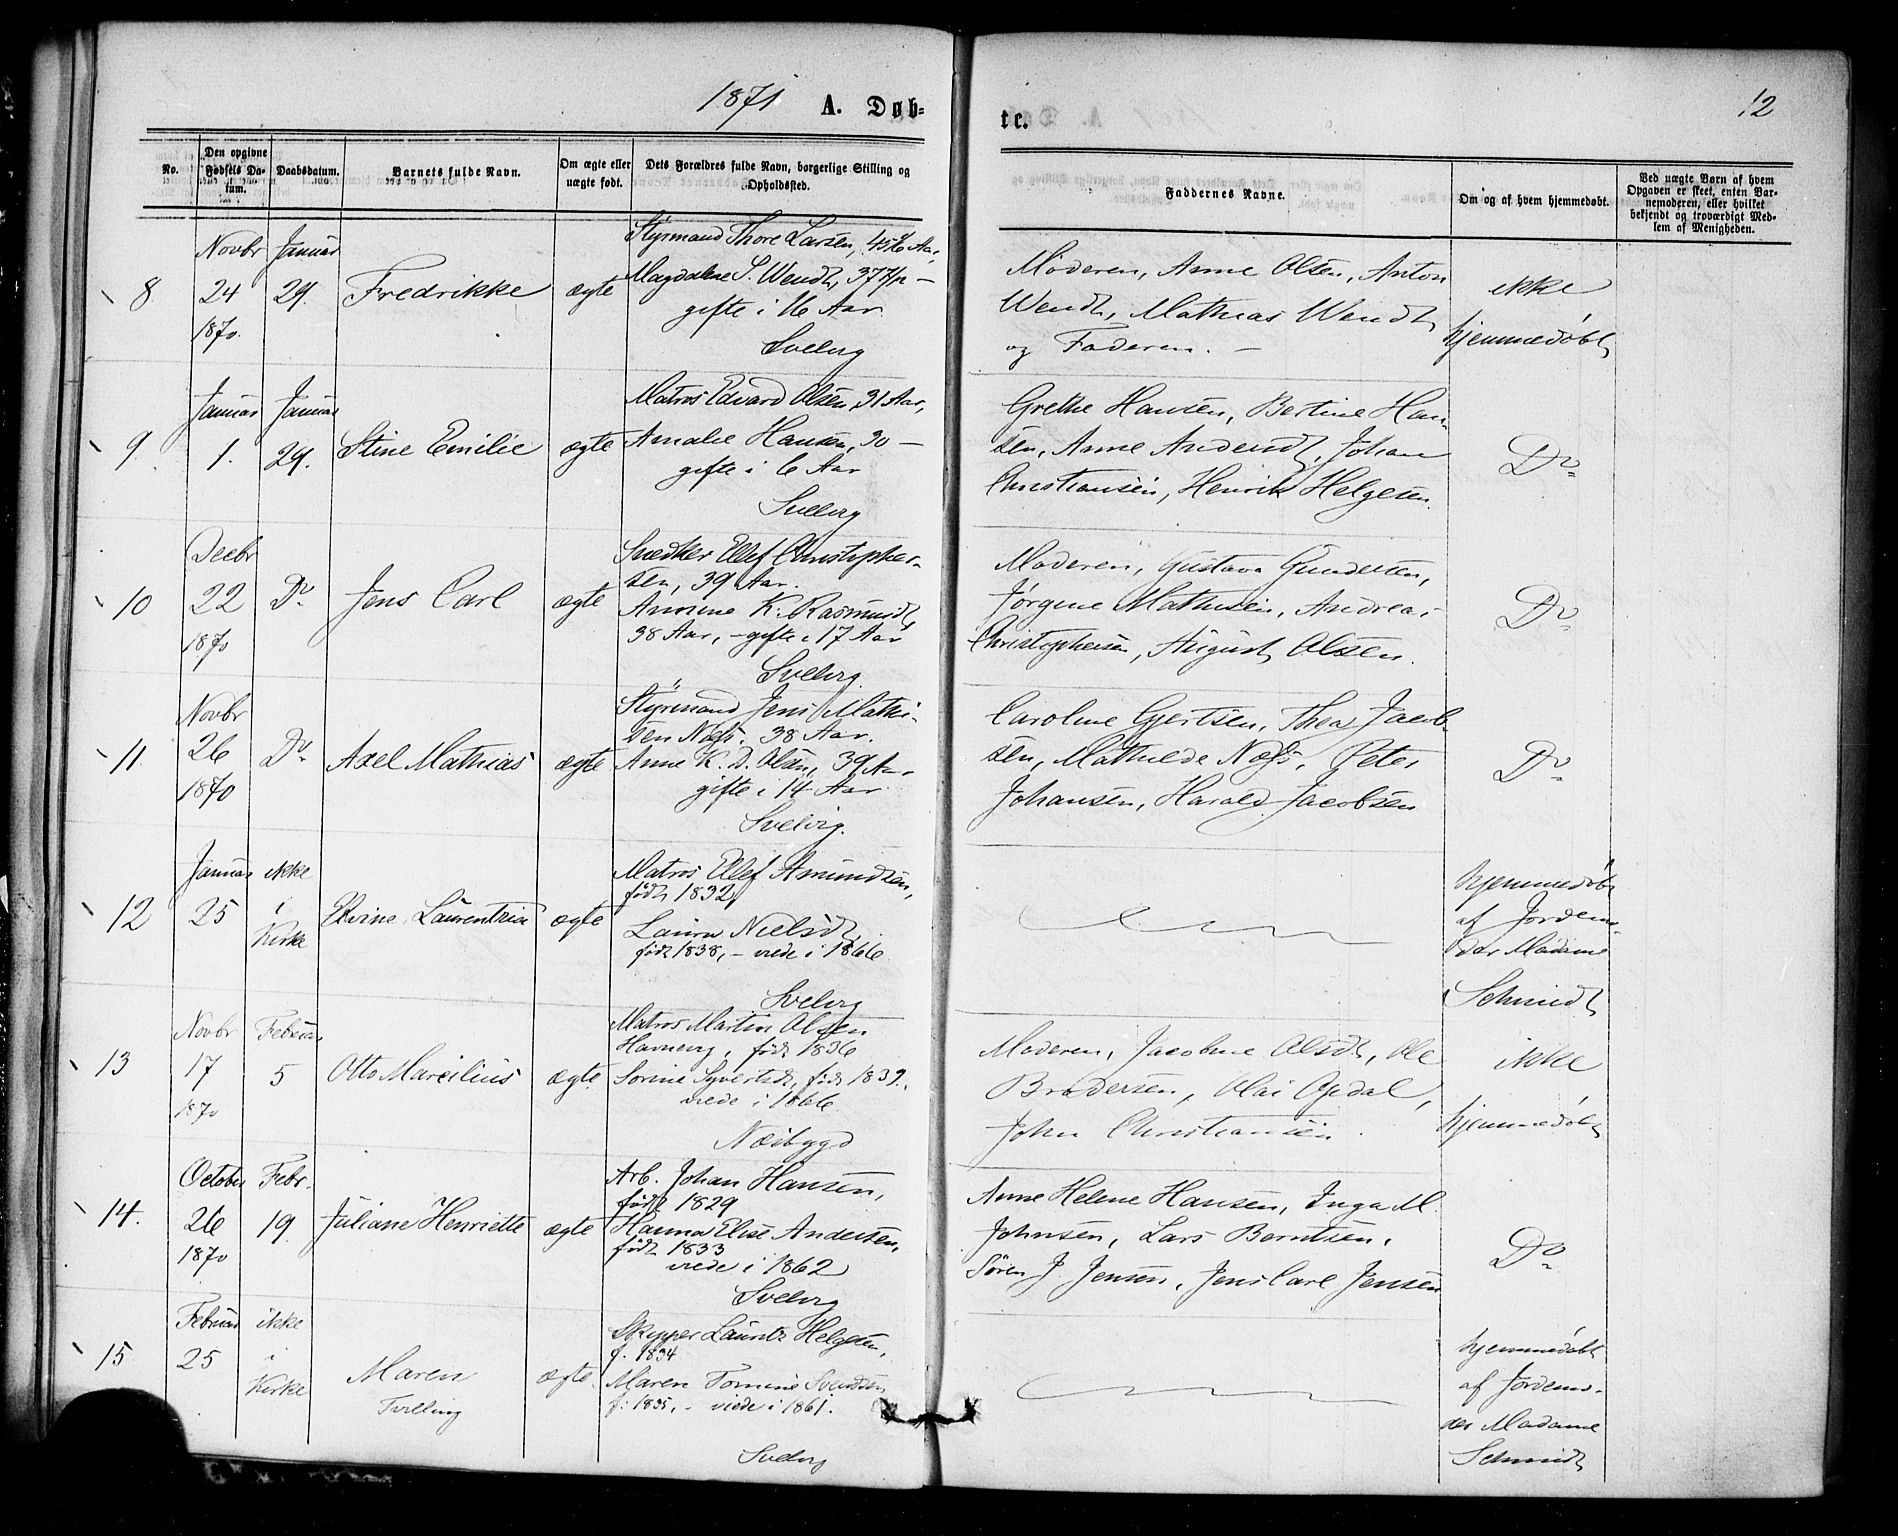 1871 A. Døb-
No.
Den opgivne
Fødsels Da-
tum.
Daabsdatum.
Barnets fulde Navn.
Om ægte eller
uægte født.
Dets Forældres fulde Navn, borgerlige Stilling og
Opholdssted.
8
Novbr
24
1870.
Januar
29.
Fredrikke
ægte
Styrmand Thore Larsen, Aar,
Magdalene S. Wendt, 37 –
gifte i 16 Aar
Svelvig
9.
Januar
1.
Januar
29.
Stine Emilie
ægte
Matros Edvard Olsen, 31 Aar,
Amalie Hansen, 30 –
gifte i 6 Aar
Svelvig
10
Decbr
22
1870
Do
Jens Carl
ægte
Snedker Ellef Christopher-
sen, 39 Aar.
K. Rasmusdt,
38 Aar, – gifte i 17 Aar
Svelvig
11.
Novbr
26
1870
Do
Axel Mathias
ægte
Styrmand Jens Mathi-
sen Næs. 38 Aar.
Anne K. D. Olsen, 39 Aar
gifte i 14 Aar
Svelvig.
12
Januar
25
ikke
i
Kirke
Elvine Laurentzia
ægte
Matros Ellef Amundsen,
født 1832,
Laura Nielsdt,
født 1838, – viede i 1866
Svelvig
13
Novbr
17
1870
Februar
5
Otto Marcilius
ægte
Matros Martin Olsen
Havnevig, født 1836
Sorine Syvertsdt, født 1839,
viede i 1866
Næsbygd
14.
October
26
1870
Febr.
19
Juliane Henriette
ægte
Arb. Johan Hansen,
født 1829
Hanna Elise Andersen,
født 1833
viede i 1862
Svelvig
15
Februar
25
ikke
i
Kirke
Maren
Tvilling
ægte.
Skipper Lauritz Helgesen,
f. 1834
Maren Tomine Svendsen
f: 1835, – viede i 1861.
Svelvig
te.
12
Faddernes Navne.
Om og af hvem hjemmedøbt.
Ved uægte Børn af hvem
Opgaven er skeet, enten Bar-
nemoderen, eller hvilket
bekjendt og troværdigt Med-
lem af Menigheden.
Moderen, Anne Olsen, Anton
Wendt, Mathias Wendt
og Faderen. –
ikke
hjemmedøbt
Grethe Hansen, Bertine Han-
sen, Anne Andersdt, Johan
Christiansen, Henrik Helgesen.
Do
Moderen, Gustava Gundersen,
Jørgine Mathisen, Andreas
Christophersen, August Olsen.
Do
Caroline Gjertsen, Thea Jacob-
sen, Mathilde Næss, Peter
Johansen, Harald Jacobsen
Do
hjemmedøbt
af Jordemo-
der Madame
Schmidt
Moderen, Jacobine Olsdt, Ole
Brodersen, Olai Opdal,
John Christiansen.
ikke
hjemmedøbt
Anne Helene Hansen, Inga M.
Johnsen, Lars Berntsen,
Søren J. Jensen, Jens Carl Jensen
Do
hjemmedøbt
af Jordemo-
der Madame
Schmidt